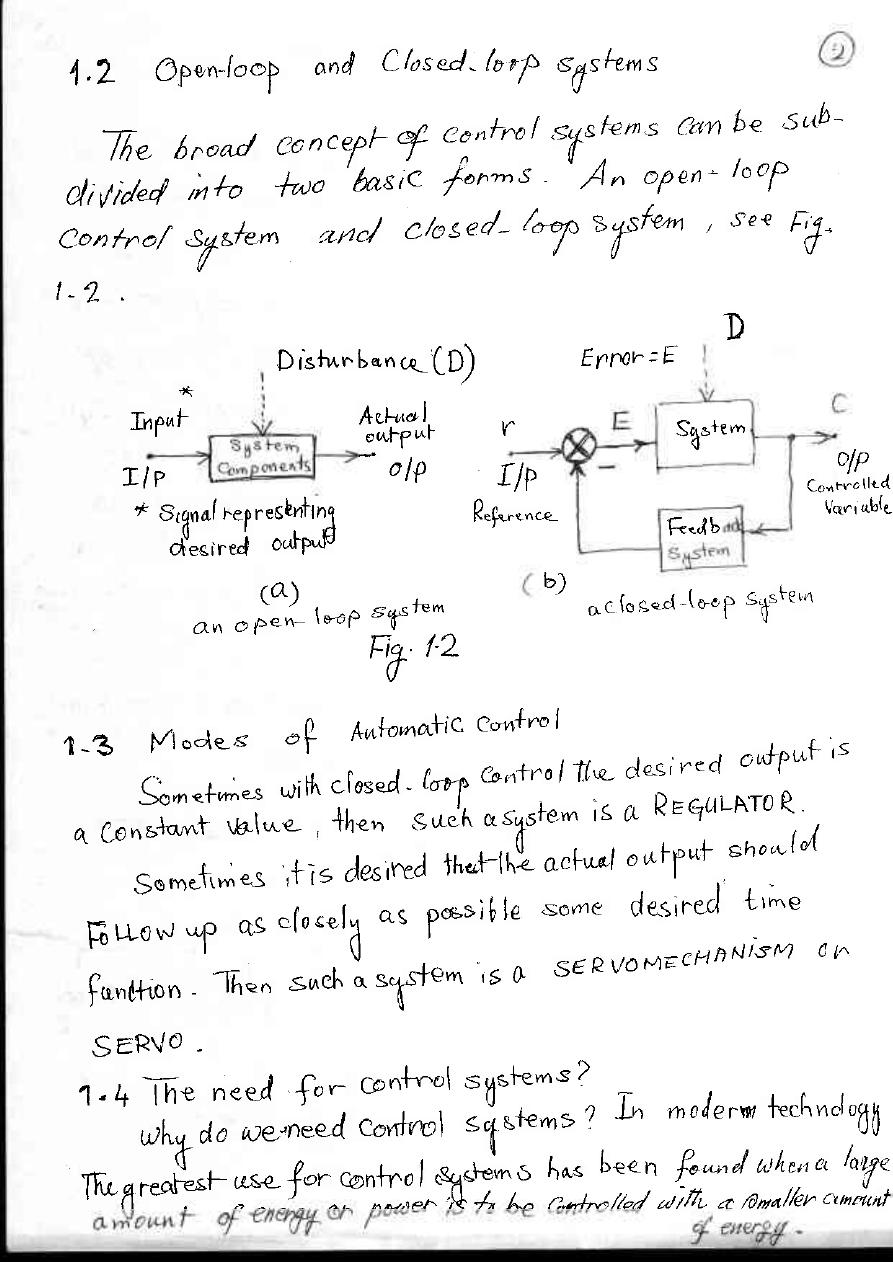 2
1.2 Open-loop and Closed-loop systems
The broad concept of control systems can be sub-
divided into two basic forms. An open-loop
Control System and closed-loop system, see Fig.
1-2.
D
Disturbance (D)
Error = E
*
Input
Actual
output
C
r
E
System
System
Components
I/P
O/P
I/P
−
O/P
Controlled
Variable
* Signal representing
desired output
Reference
Feedback
System
(a)
(b)
an open-loop system
a closed-loop system
Fig. 1-2
1-3 Modes of Automatic Control
Sometimes with closed-loop Control The desired output is
a Constant value, then such a system is a REGULATOR.
Sometimes it is desired that the actual output should
FOLLOW up as closely as possible some desired time
function. Then such a system is a SERVOMECHANISM or
SERVO.
1.4 The need for control systems?
why do we need Control systems? In modern technology
The greatest use for control systems has been found when a large
amount of energy or power is to be Controlled with a smaller amount
of energy.